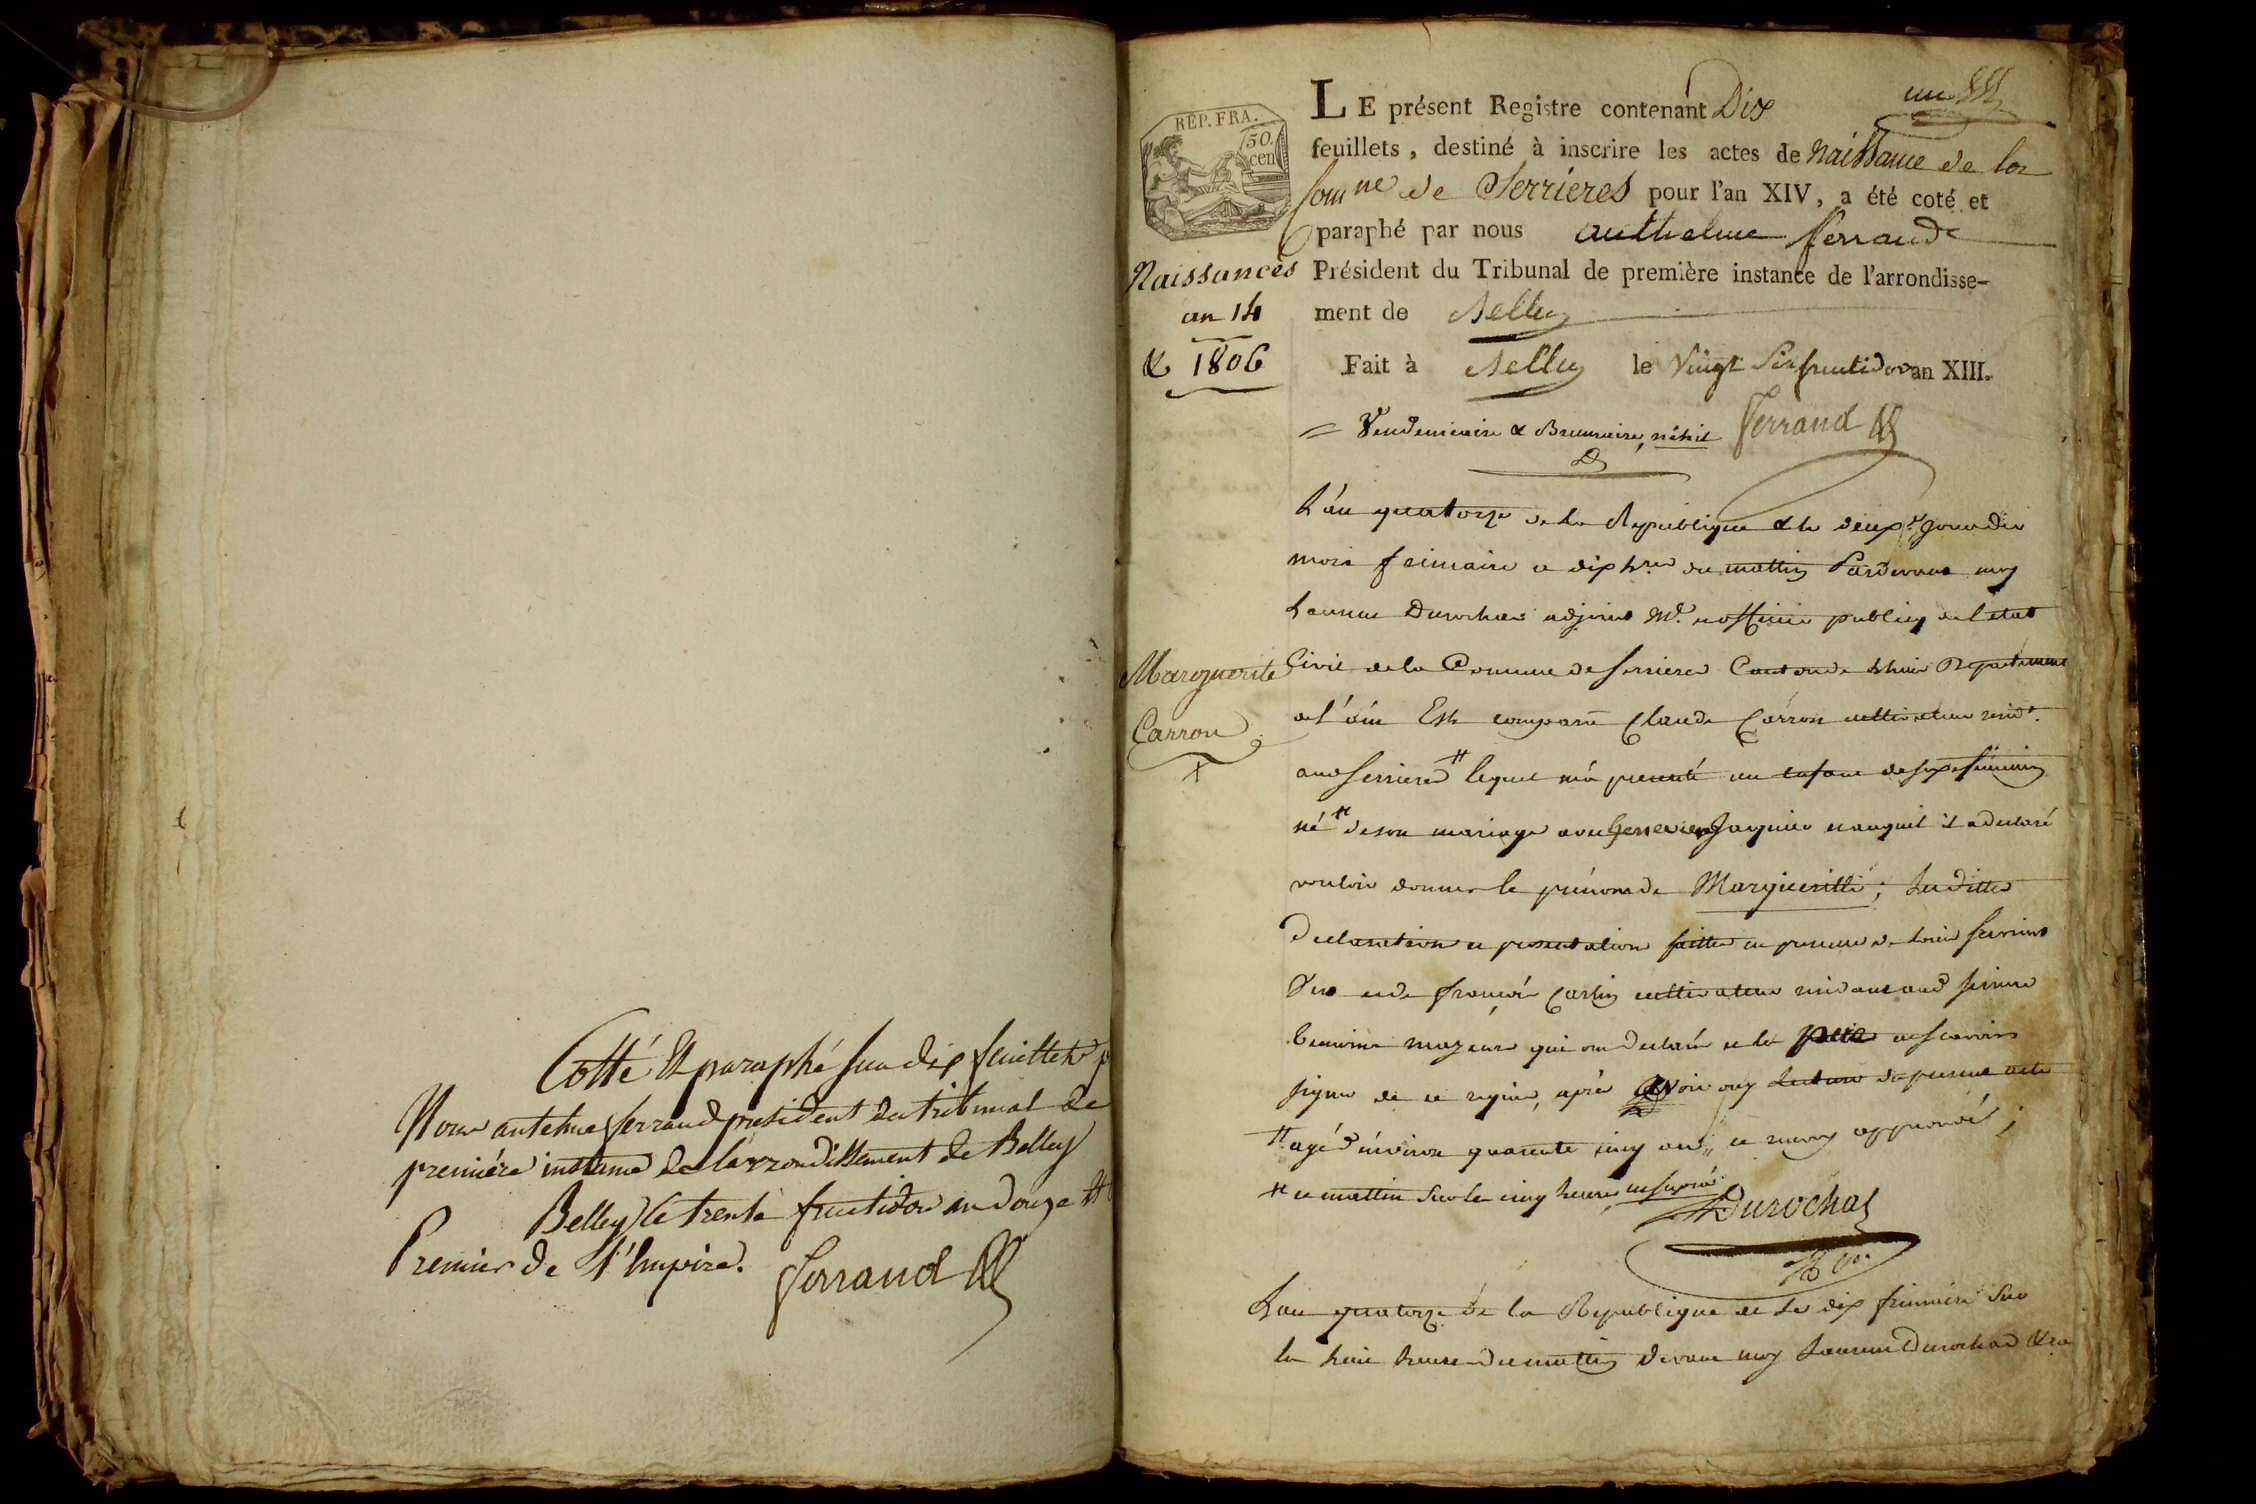 Cotté Et paraphé sur dix feuillets p
Nous antelme ferrand president du tribunal de
premiére instance de l'arrondissement de Belley
Belley le trente fructidor an douze
Premier de l'Empire. ferrand
un
REP. FRA.
50.
cen
LE présent Registre contenant Dix
feuillets, destiné à inscrire les actes de Naissance de la
Comne de Serrieres pour l'an XIV, a été coté et
paraphé par nous anthelme ferrand
Naissances
an 14
& 1806
Président du Tribunal de première instance de l'arrondisse-
ment de Belley
Fait à Belley le vingt six fructidor an XIII.
= Vendemiaire & Brumaire, nihil ferrand
L'an quatorze de la Republique & le deux.e jour du
mois frimaire a dix hres du mattin Pardevant moy
Laurent Durochat adjoint officier public de l'etat
Marguerite
Carron
Civil de la Commune de serrieres Canton de Lhuis Departement
de l'ain Est comparu Claude Carron cultivateur resid.t
aud serrieres # lequel m'a presenté un enfant de sexe féminin
né # de son mariage avec Genevieve Jacquier et auquel il a declaré
vouloir donner le prénom de Margueritte; Lesdittes
declaration et presentation faittes en presence de
et de françois Carlin cultivateur residant aud serriere
temoins majeurs qui ont declaré de ne scavoir
signer de ce requis, après avoir ouy lecture du present acte
# agé d'environ quarente cinq ans, approuvé;
# ce mattin sur les cinq heures
Durochat
L'an quatorze de la Republique & le dix frimaire sur
les huit heures du mattin devant moy Laurent Durochat